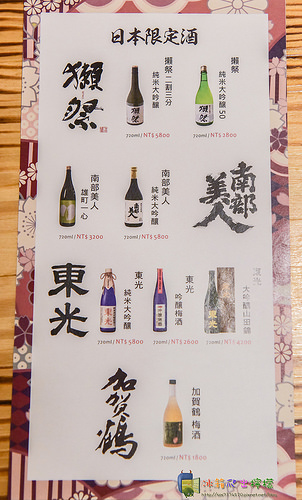 日本限定酒
獺祭
獺祭二割三分
純米大吟釀
720ml / NT$ 5800
獺祭
純米大吟釀 50
720ml / NT$
南部美人
雄町一心
720ml / NT$ 3200
南部美人
純米大吟釀
720ml / NT$ 5800
南部美人
東光
東光
純米大吟釀
720ml / NT$ 5800
東光
吟釀梅酒
720ml / NT$ 2600
東光
大吟釀山田錦
720ml / NT$ 4200
加賀鶴
加賀鶴 梅酒
720ml / NT$ 1800